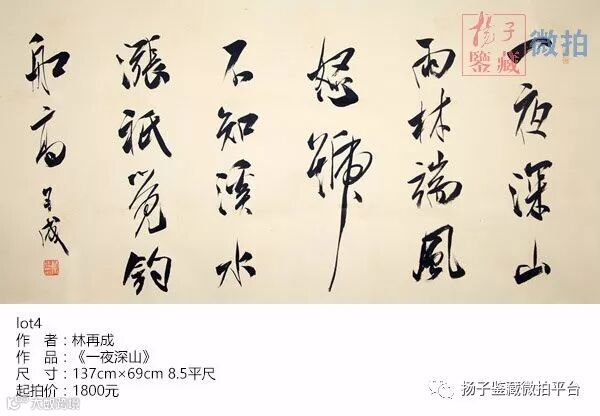 一夜深山
雨林端風
怒號
不知溪水
漲祇覺釣
船高 再成
揚子
鑒藏
微拍
lot4
作 者：林再成
作 品：《一夜深山》
尺 寸：137cm×69cm 8.5平尺
起拍价：1800元
扬子鉴藏微拍平台
大数跨境